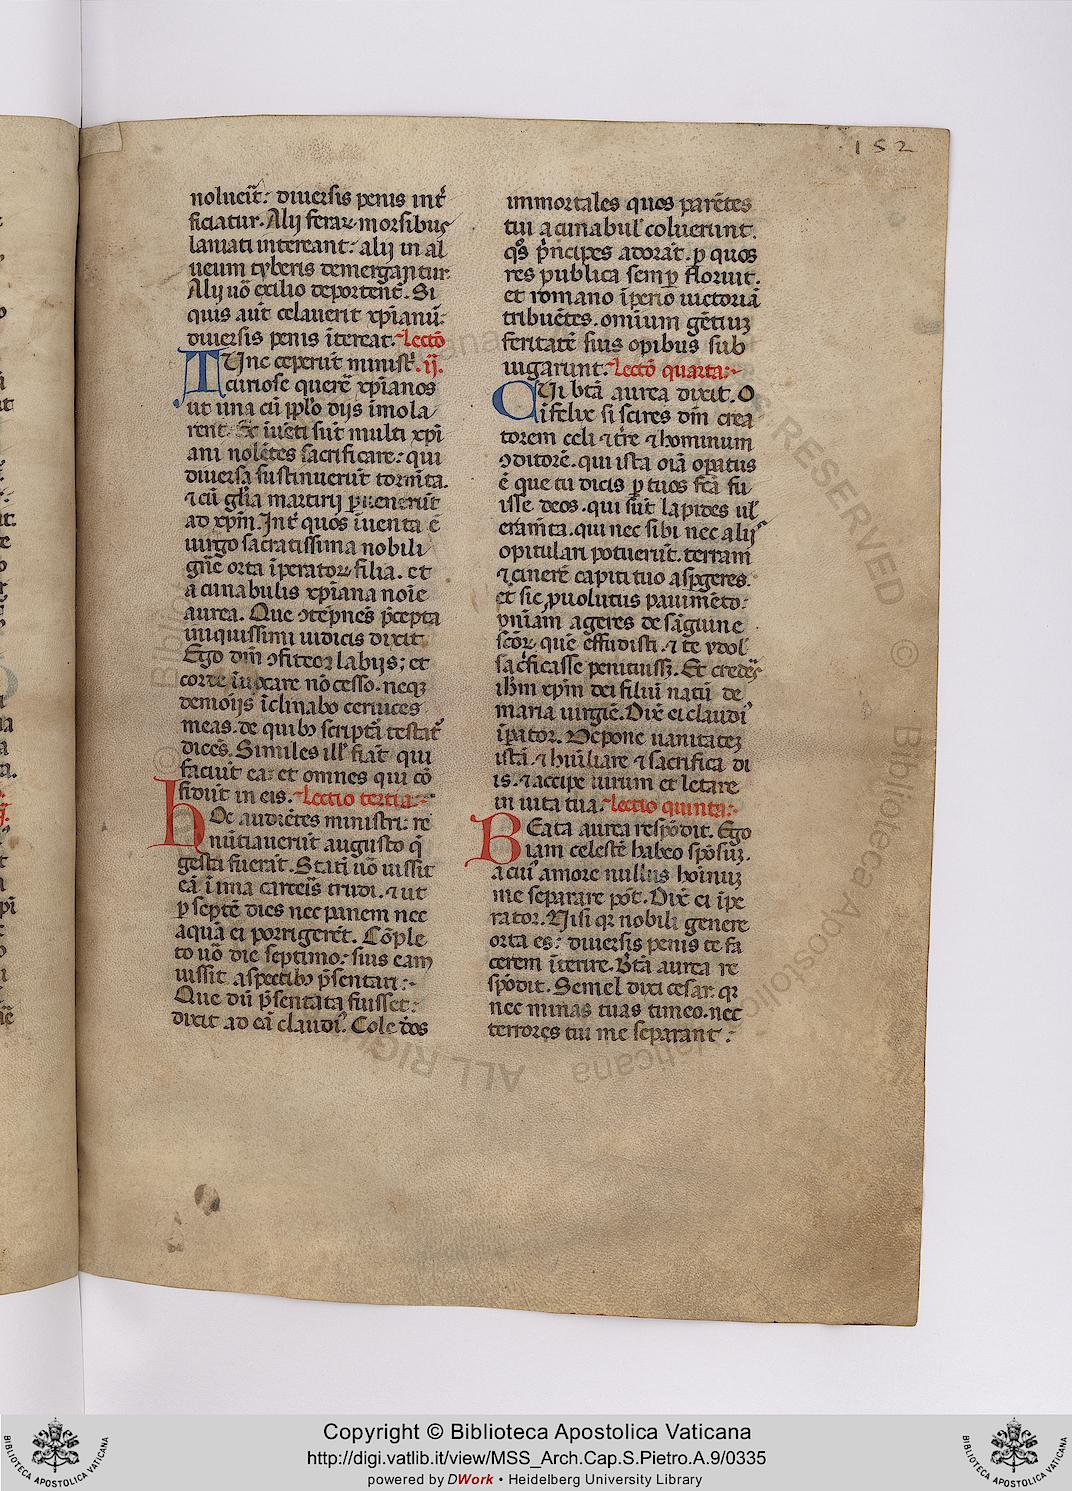 152
noluerit: diuersis penis int̾
ficiatur. Alij feraꝝ morsibus
laniati intereant: alij in al
ueum tyberis demergantur.
Alij uo̅ exilio deporten̅t. Si
quis aut̅ celauerit xp̅ianu̅:
diuersis penis i̅tereat. Lectio̅
TUnc ceperu̅t minist̾. ij.
curiose quere̅ xp̅ianos
ut una cu̅ ip̅o dijs i̅mola
rent. Et i̅ue̅ti su̅t multi xp̅i
ani nole̅tes sacrificare: qui
diuersa sustinueru̅t torm̅ta.
⁊ cu̅ gl̅ia martirij ꝑueneru̅t
ad xp̅m. Int̾ quos i̅uenta e̅
uirgo sacratissima nobili
gn̅e orta i̅peratoꝝ filia. et
a cunabulis xp̅iana noi̅e
aurea. Que ꝯte̅pnes p̅cepta
iniquissimi iudicis dixit
Ego dn̅m ꝯfiteor labijs: et
corde i̅uocare no̅ cesso. neqꝫ
demonijs i̅clinabo ceruices
meas. de quibꝰ sc̅ptꝰa testat̾
dice̅s. Similes ill' fia̅t qui
faciu̅t ea: et omnes qui co̅
fidu̅t in eis. Lectio tertia.
hOc audie̅tes ministri: re
nu̅tiaueru̅t augusto q̅
gesta fuera̅t. Stati̅ uo̅ iussit
ea̅ i̅ ima carceris trudi. ⁊ ut
ꝑ septe̅ dies nec panem nec
aqua̅ ei porrigere̅t. Co̅ple
to uo̅ die septimo: suis eam
iussit aspectibꝰ p̅sentari:
Que du̅ p̅sentata fuisset:
dixit ad ea̅ claudi'. Cole d̅os
immortales quos pare̅tes
tui a cunabul' coluerunt.
qo̅s p̅ncipes adora̅t. ꝑ quos
res publica semꝑ floruit.
et romano i̅perio uictoria̅
tribue̅tes. omnium ge̅tiuꝫ
feritate̅ suis opibus sub
iugarunt. Lectio̅ quarta:
CUi bt̅a aurea dixit. O
i̅felix si scires dn̅m crea
torem celi ⁊ t̾re ⁊ hominum
ꝯditore̅. qui ista oi̅a opatus
e̅ que tu dicis ꝑ tuos fc̅a fu
isse deos. qui su̅t lapides ul'
eram̅ta. qui nec sibi nec alijs
opitulari potueru̅t. terram
⁊ cinere̅ capiti tuo asꝑgeres.
et sic ꝓuolutus pauime̅to:
pn̅iam ageres de sanguine
sc̅oꝝ que̅ effudisti. ⁊ te ydol'
sac̾ficasse penituissꝫ. Et crederes
ih̅m xp̅m dei filiu̅ natu̅ de
maria uirgi̅e. Dix̅ ei claudi'
i̅pator. Depone uanitateꝫ
ista̅ ⁊ hu̅iliare ⁊ sacrifica di
is. ⁊ accipe uirum et letare
in uita tua. lectio quinta:
BEata aurea respo̅dit. Ego
iam celeste̅ habeo spo̅suꝫ.
a cui' amore nullus hoi̅nuꝫ
me separare po̅t. Dix̅ ei i̅pe
rator. Nisi qꝛ nobili genere
orta es: diuersis penis te fa
cerem i̅terire. Bt̅a aurea re
spo̅dit. Semel dixi cesar. qꝛ
nec minas tuas timeo. nec
terrores tui me separant:
Copyright © Biblioteca Apostolica Vaticana
http://digi.vatlib.it/view/MSS_Arch.Cap.S.Pietro.A.9/0335
powered by DWork • Heidelberg University Library